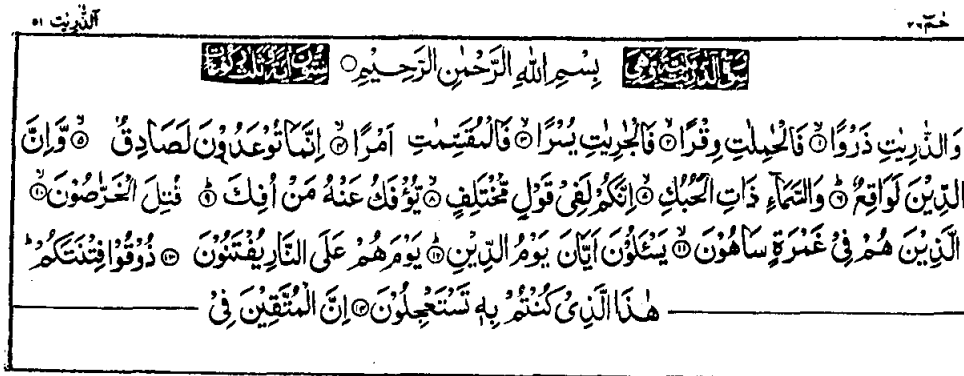 حٰمٓ ٢٦ الذّٰرِيٰت ٥١
سُوْرَةُ الذّٰرِيٰتِ مَكِّيَّةٌ وَّهِىَ بِسْمِ اللّٰهِ الرَّحْمٰنِ الرَّحِيْمِ سِتُّوْنَ اٰيَةً وَّثَلٰثُ رُكُوْعَاتٍ
وَالذّٰرِيٰتِ ذَرْوًا ۙ﴿١﴾ فَالْحٰمِلٰتِ وِقْرًا ۙ﴿٢﴾ فَالْجٰرِيٰتِ يُسْرًا ۙ﴿٣﴾ فَالْمُقَسِّمٰتِ اَمْرًا ۙ﴿٤﴾ اِنَّمَا تُوْعَدُوْنَ لَصَادِقٌ ۙ﴿٥﴾ وَّاِنَّ
الدِّيْنَ لَوَاقِعٌ ؕ﴿٦﴾ وَالسَّمَآءِ ذَاتِ الْحُبُكِ ۙ﴿٧﴾ اِنَّكُمْ لَفِىْ قَوْلٍ مُّخْتَلِفٍ ۙ﴿٨﴾ يُّؤْفَكُ عَنْهُ مَنْ اُفِكَ ؕ﴿٩﴾ قُتِلَ الْخَرّٰصُوْنَ ۙ﴿١٠﴾
الَّذِيْنَ هُمْ فِىْ غَمْرَةٍ سَاهُوْنَ ۙ﴿١١﴾ يَسْـَٔلُوْنَ اَيَّانَ يَوْمُ الدِّيْنِ ؕ﴿١٢﴾ يَوْمَ هُمْ عَلَى النَّارِ يُفْتَنُوْنَ ﴿١٣﴾ ذُوْقُوْا فِتْنَتَكُمْ ؕ
هٰذَا الَّذِىْ كُنْتُمْ بِهٖ تَسْتَعْجِلُوْنَ ﴿١٤﴾ اِنَّ الْمُتَّقِيْنَ فِىْ